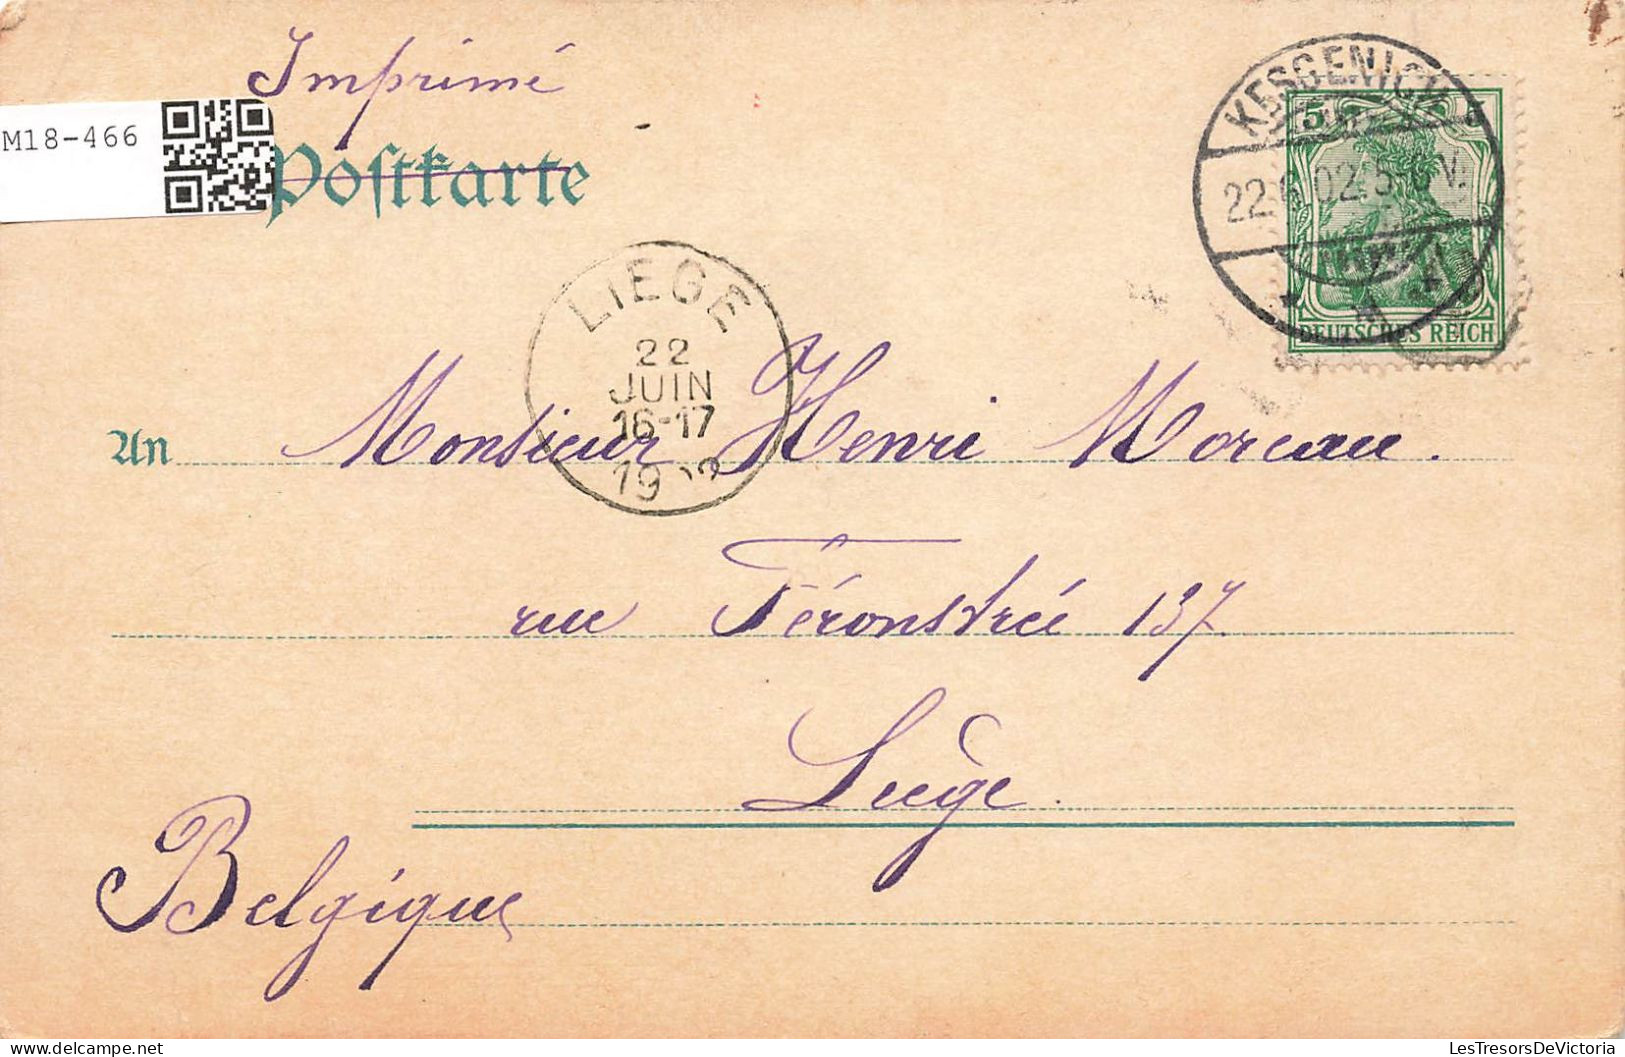 Imprimé
M18-466
Postkarte
KESSENICH
5
22.6.02.5-6V.
DEUTSCHES REICH
LIEGE
22
JUIN
16-17
1902
An Monsieur Henri Moreau.
rue Féronstrée 137.
Liège.
Belgique
LesTresorsDeVictoria